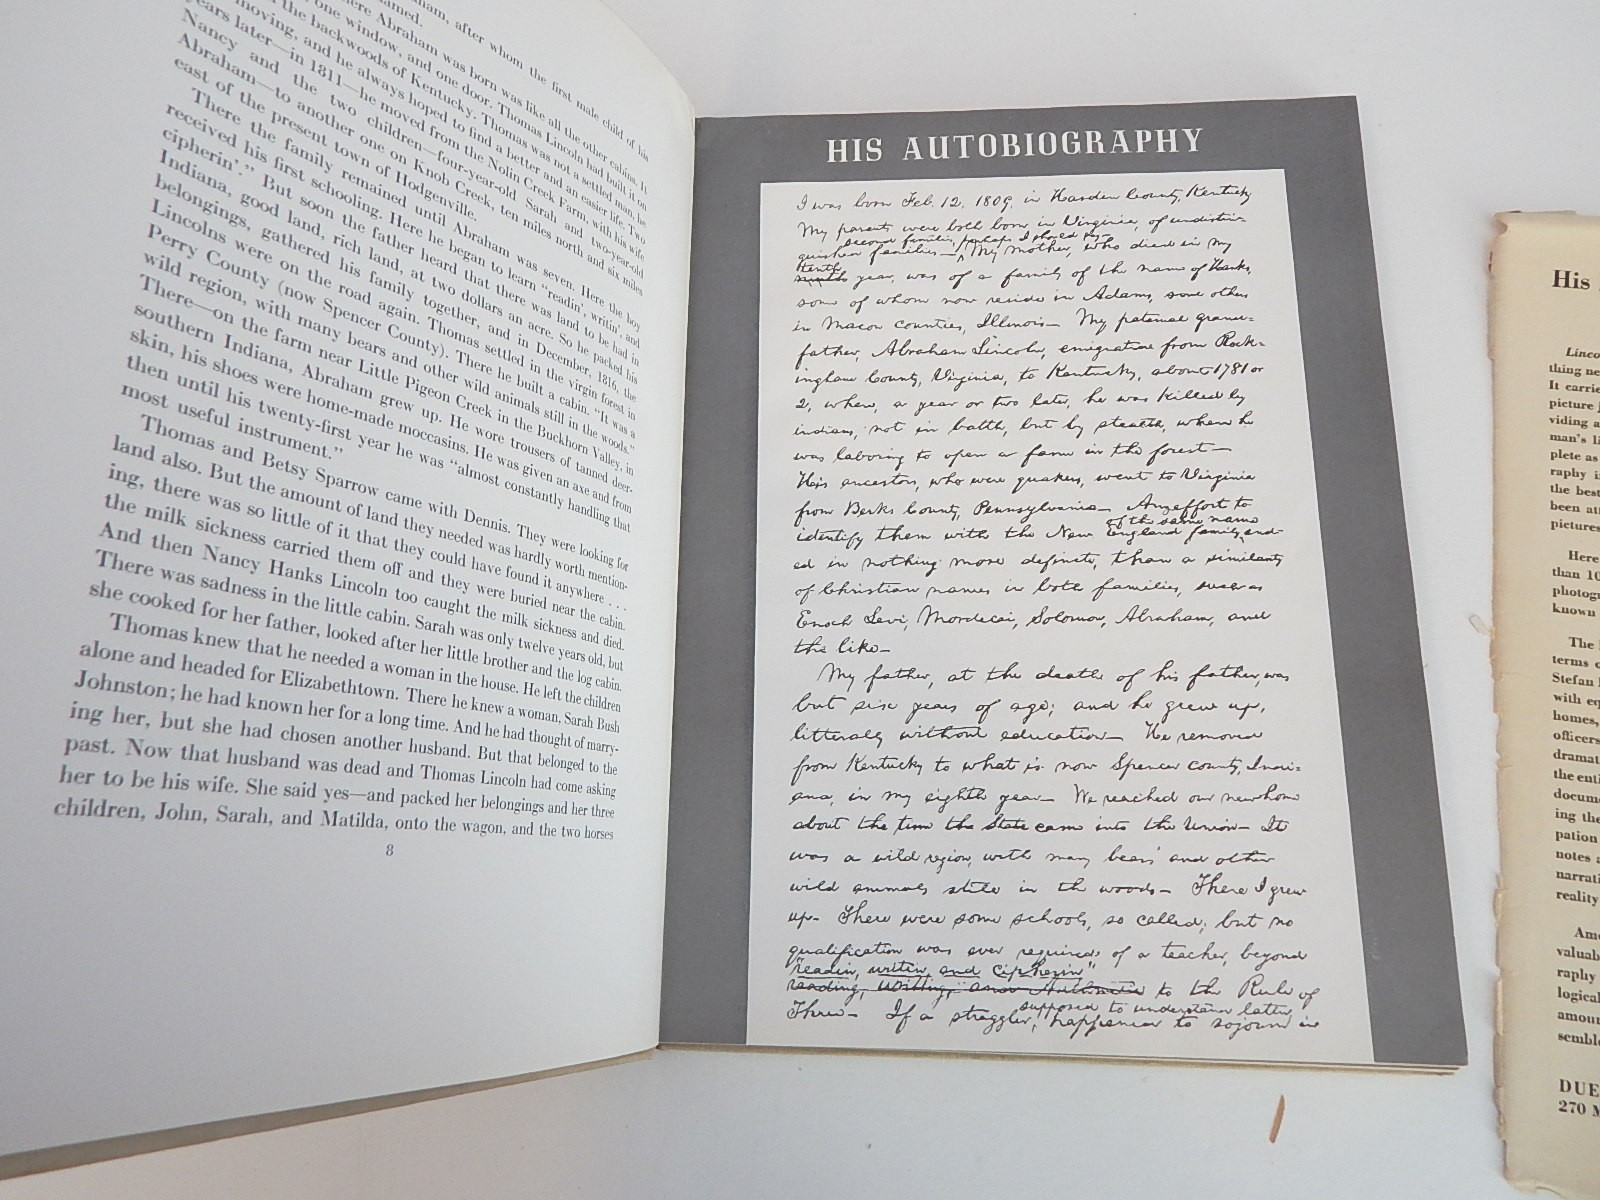 aham, after whom the first male child of his
named.
ere Abraham was born was like all the other cabins. It
one window, and one door. Thomas Lincoln had built it on
the backwoods of Kentucky. Thomas was not a settled man, he
moving, and he always hoped to find a better and an easier life. Two
years later—in 1811—he moved from the Nolin Creek Farm, with his wife
Nancy and the two children—four-year-old Sarah and two-year-old
Abraham—to another one on Knob Creek, ten miles north and six miles
east of the present town of Hodgenville.
There the family remained until Abraham was seven. Here the boy
received his first schooling. Here he began to learn "readin', writin', and
cipherin'." But soon the father heard that there was land to be had in
Indiana, good land, rich land, at two dollars an acre. So he packed his
belongings, gathered his family together, and in December, 1816, the
Lincolns were on the road again. Thomas settled in the virgin forest in
Perry County (now Spencer County). There he built a cabin. "It was a
wild region, with many bears and other wild animals still in the woods."
There—on the farm near Little Pigeon Creek in the Buckhorn Valley, in
southern Indiana, Abraham grew up. He wore trousers of tanned deer-
skin, his shoes were home-made moccasins. He was given an axe and from
then until his twenty-first year he was "almost constantly handling that
most useful instrument."
Thomas and Betsy Sparrow came with Dennis. They were looking for
land also. But the amount of land they needed was hardly worth mention-
ing, there was so little of it that they could have found it anywhere . . .
the milk sickness carried them off and they were buried near the cabin.
And then Nancy Hanks Lincoln too caught the milk sickness and died.
There was sadness in the little cabin. Sarah was only twelve years old, but
she cooked for her father, looked after her little brother and the log cabin.
Thomas knew that he needed a woman in the house. He left the children
alone and headed for Elizabethtown. There he knew a woman, Sarah Bush
Johnston; he had known her for a long time. And he had thought of marry-
ing her, but she had chosen another husband. But that belonged to the
past. Now that husband was dead and Thomas Lincoln had come asking
her to be his wife. She said yes—and packed her belongings and her three
children, John, Sarah, and Matilda, onto the wagon, and the two horses
8
HIS AUTOBIOGRAPHY
I was born Feb. 12, 1809, in Hardin County, Kentucky
My parents were both born in Virginia, of undistin-
second families, perhaps I should say—
guished families— My mother, who died in my
tenth
ninth year, was of a family of the name of Hanks,
some of whom now reside in Adams, some others
in Macon counties, Illinois— My paternal grand-
father, Abraham Lincoln, emigrated from Rock-
ingham County, Virginia, to Kentucky, about 1781 or
2, where, a year or two later, he was killed by
indians, not in battle, but by stealth, when he
was laboring to open a farm in the forest—
His ancestors, who were quakers, went to Virginia
from Berks County, Pennsylvania— An effort to
of the same name
identify them with the New England family end-
ed in nothing more definite, than a similarity
of Christian names in both families, such as
Enoch, Levi, Mordecai, Solomon, Abraham, and
the like—
My father, at the death of his father, was
but six years of age; and he grew up,
litterally without education— He removed
from Kentucky to what is now Spencer county, Indi-
ana, in my eighth year— We reached our new home
about the time the State came into the Union— It
was a wild region, with many bears and other
wild animals still in the woods— There I grew
up— There were some schools, so called; but no
qualification was ever required of a teacher, beyond
"readin, writin, and cipherin"
reading, writing, and Arithmetic to the Rule of
supposed to understand latin,
Three— If a straggler, happened to sojourn in
His
Linco
thing ne
It carrie
picture
viding a
man's li
plete as
raphy i
the best
been att
pictures
Here
than 10
photog
known
The
terms o
Stefan
with eq
homes,
officers
dramat
the enti
docume
ing the
pation
notes a
narrati
reality
Ame
valuab
raphy
logical
amoun
semble
DUE
270 M